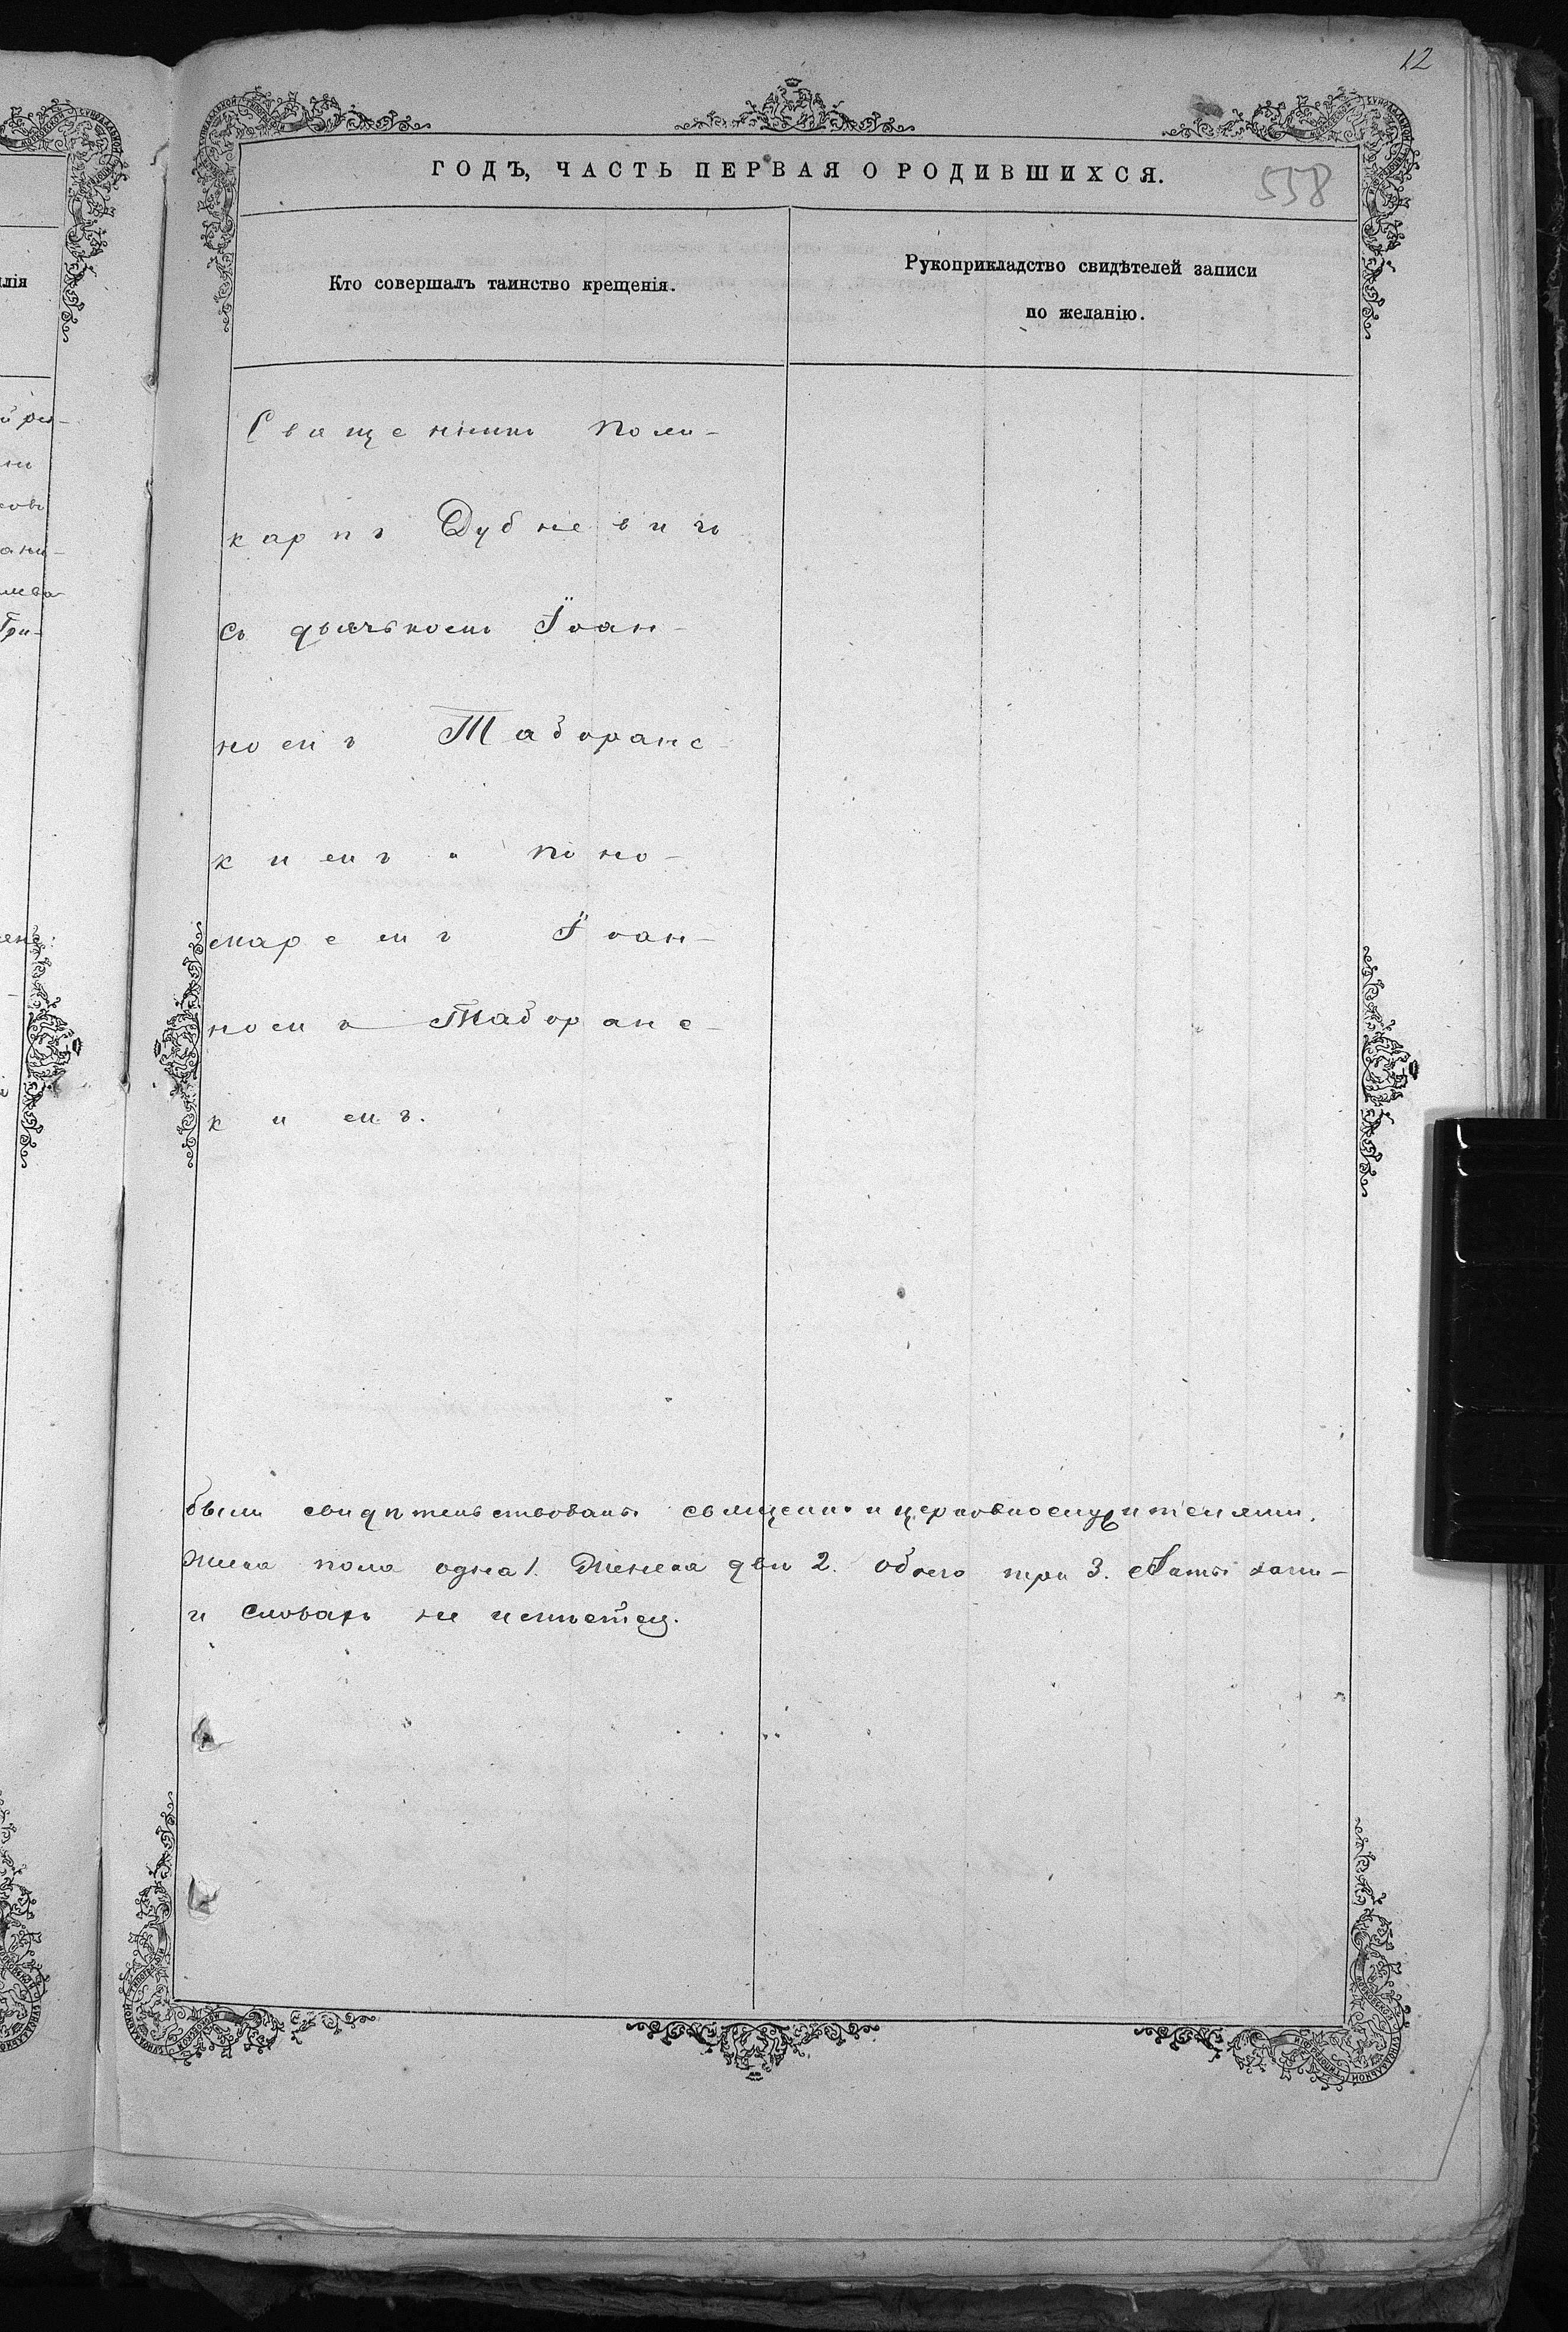 12
ГОДЪ, ЧАСТЬ ПЕРВАЯ О РОДИВШИХСЯ.
558
Кто совершалъ таинство крещенія.
Рукоприкладство свидѣтелей записи
по желанію.
Священникъ Поли-
карпъ Дубневичъ
съ дьячькомъ Іоан-
номъ Таборанс-
кимъ и поно-
маремъ Іоан-
номъ Таборанс-
кимъ.
были свидѣтельствованы священно и церковнослужителями.
Муска пола одна 1. Женска двѣ 2. обоего три 3.
и словахъ не имѣется.